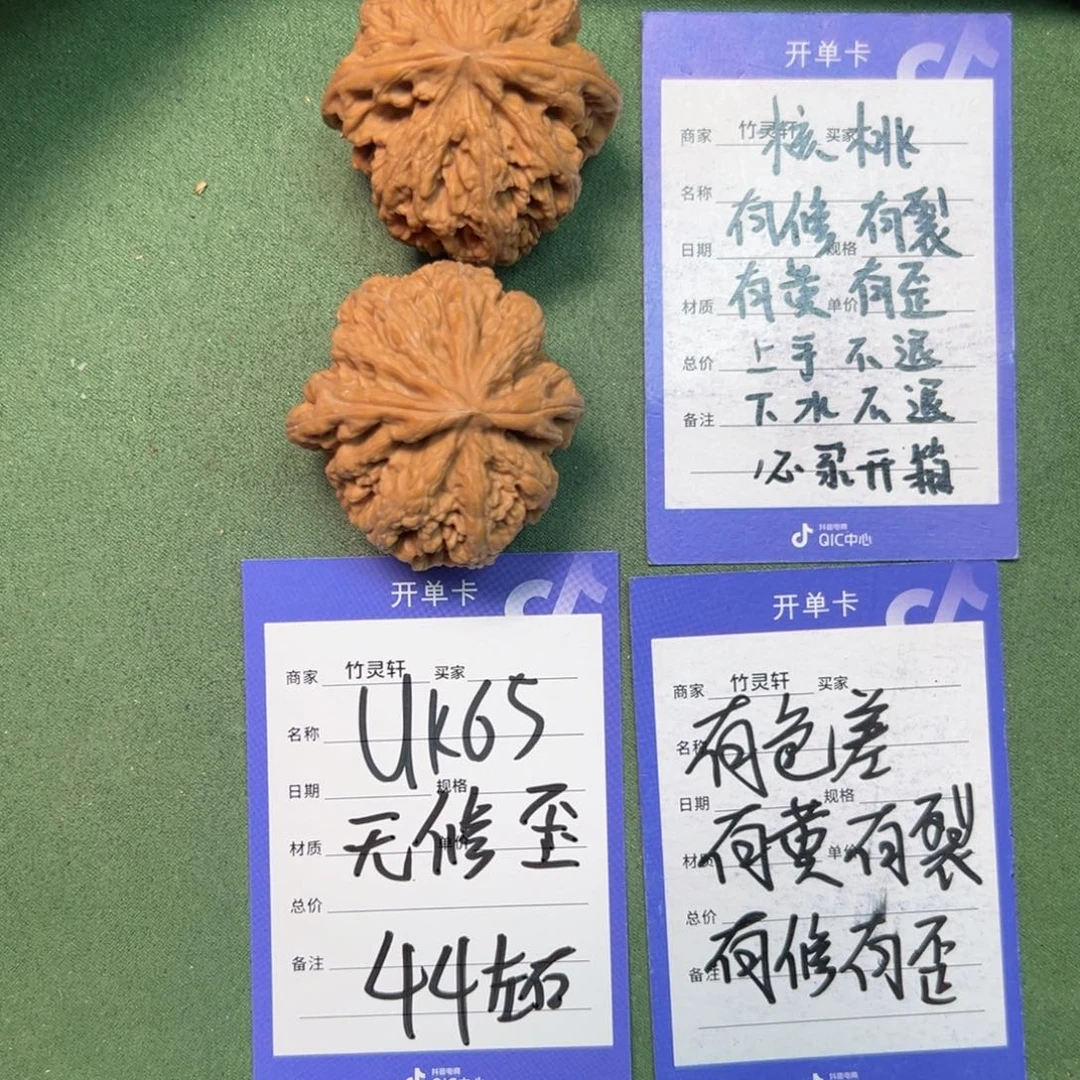 开单卡
商家 竹灵轩 买家
核桃
名称
有修 有裂
日期 规格
有黄 有歪
材质 单价
上手不退
总价
下水不退
备注
必录开箱
抖音电商
QIC中心
开单卡
商家 竹灵轩 买家
UK65
名称
日期 规格
无修 歪
材质 单价
总价
备注
44左右
抖音电商
QIC中心
开单卡
商家 竹灵轩 买家
有色差
名称
日期 规格
有黄有裂
材质 单价
总价
有修有歪
备注